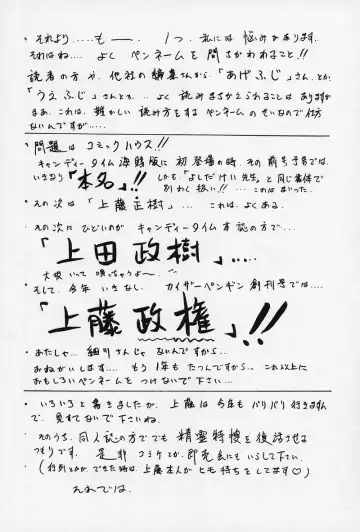 ・それより......もー、1つ、私には悩みがあります。
それはね.... よく ペンネームを間ちがわれること!!
読者の方や、他社の編集さんから、「あげふじ」さん、とか、
「うえふじ」さんとか、、よく 読みまちがえられることは ありますが
まあ、これは、難かしい読み方をする ペンネームのせいなので仕方
ないんですが.....
・問題は コミックハウス!!
キャンディータイム海賊版に初登場の時、その前号予告では、
いきなり「本名」!! しかも「よしだけい先生」と同じ条件で
別わく扱い!! ... これはまいった。
・その次は 「上藤正樹」... これは、よくある。
・その次にひどいのが キャンディータイム本誌の方で...
「上田政樹」.....
大笑いって 唄っちゃうよ〜。
・そして、今年いきなし、カイザーペンギン創刊号では....
「上藤政権」!!
・あたしゃ...細川さんじゃ ないんですから..
おねがいします.... もう1年もたつんですから... これ以上に
おもしろいペンネームを つけないで下さい...
・いろいろと書きましたが、上藤は今年も バリバリ行きますん
で、見すてないで下さいね。
・そのうち、同人誌の方でも 精霊特捜を復活させる
つもりです。 是非 コミケとか、即売会にもいらして下さい。
・(行列とか、できた時は、上藤本人が ヒモ持ちをしてます♡)
それでは。